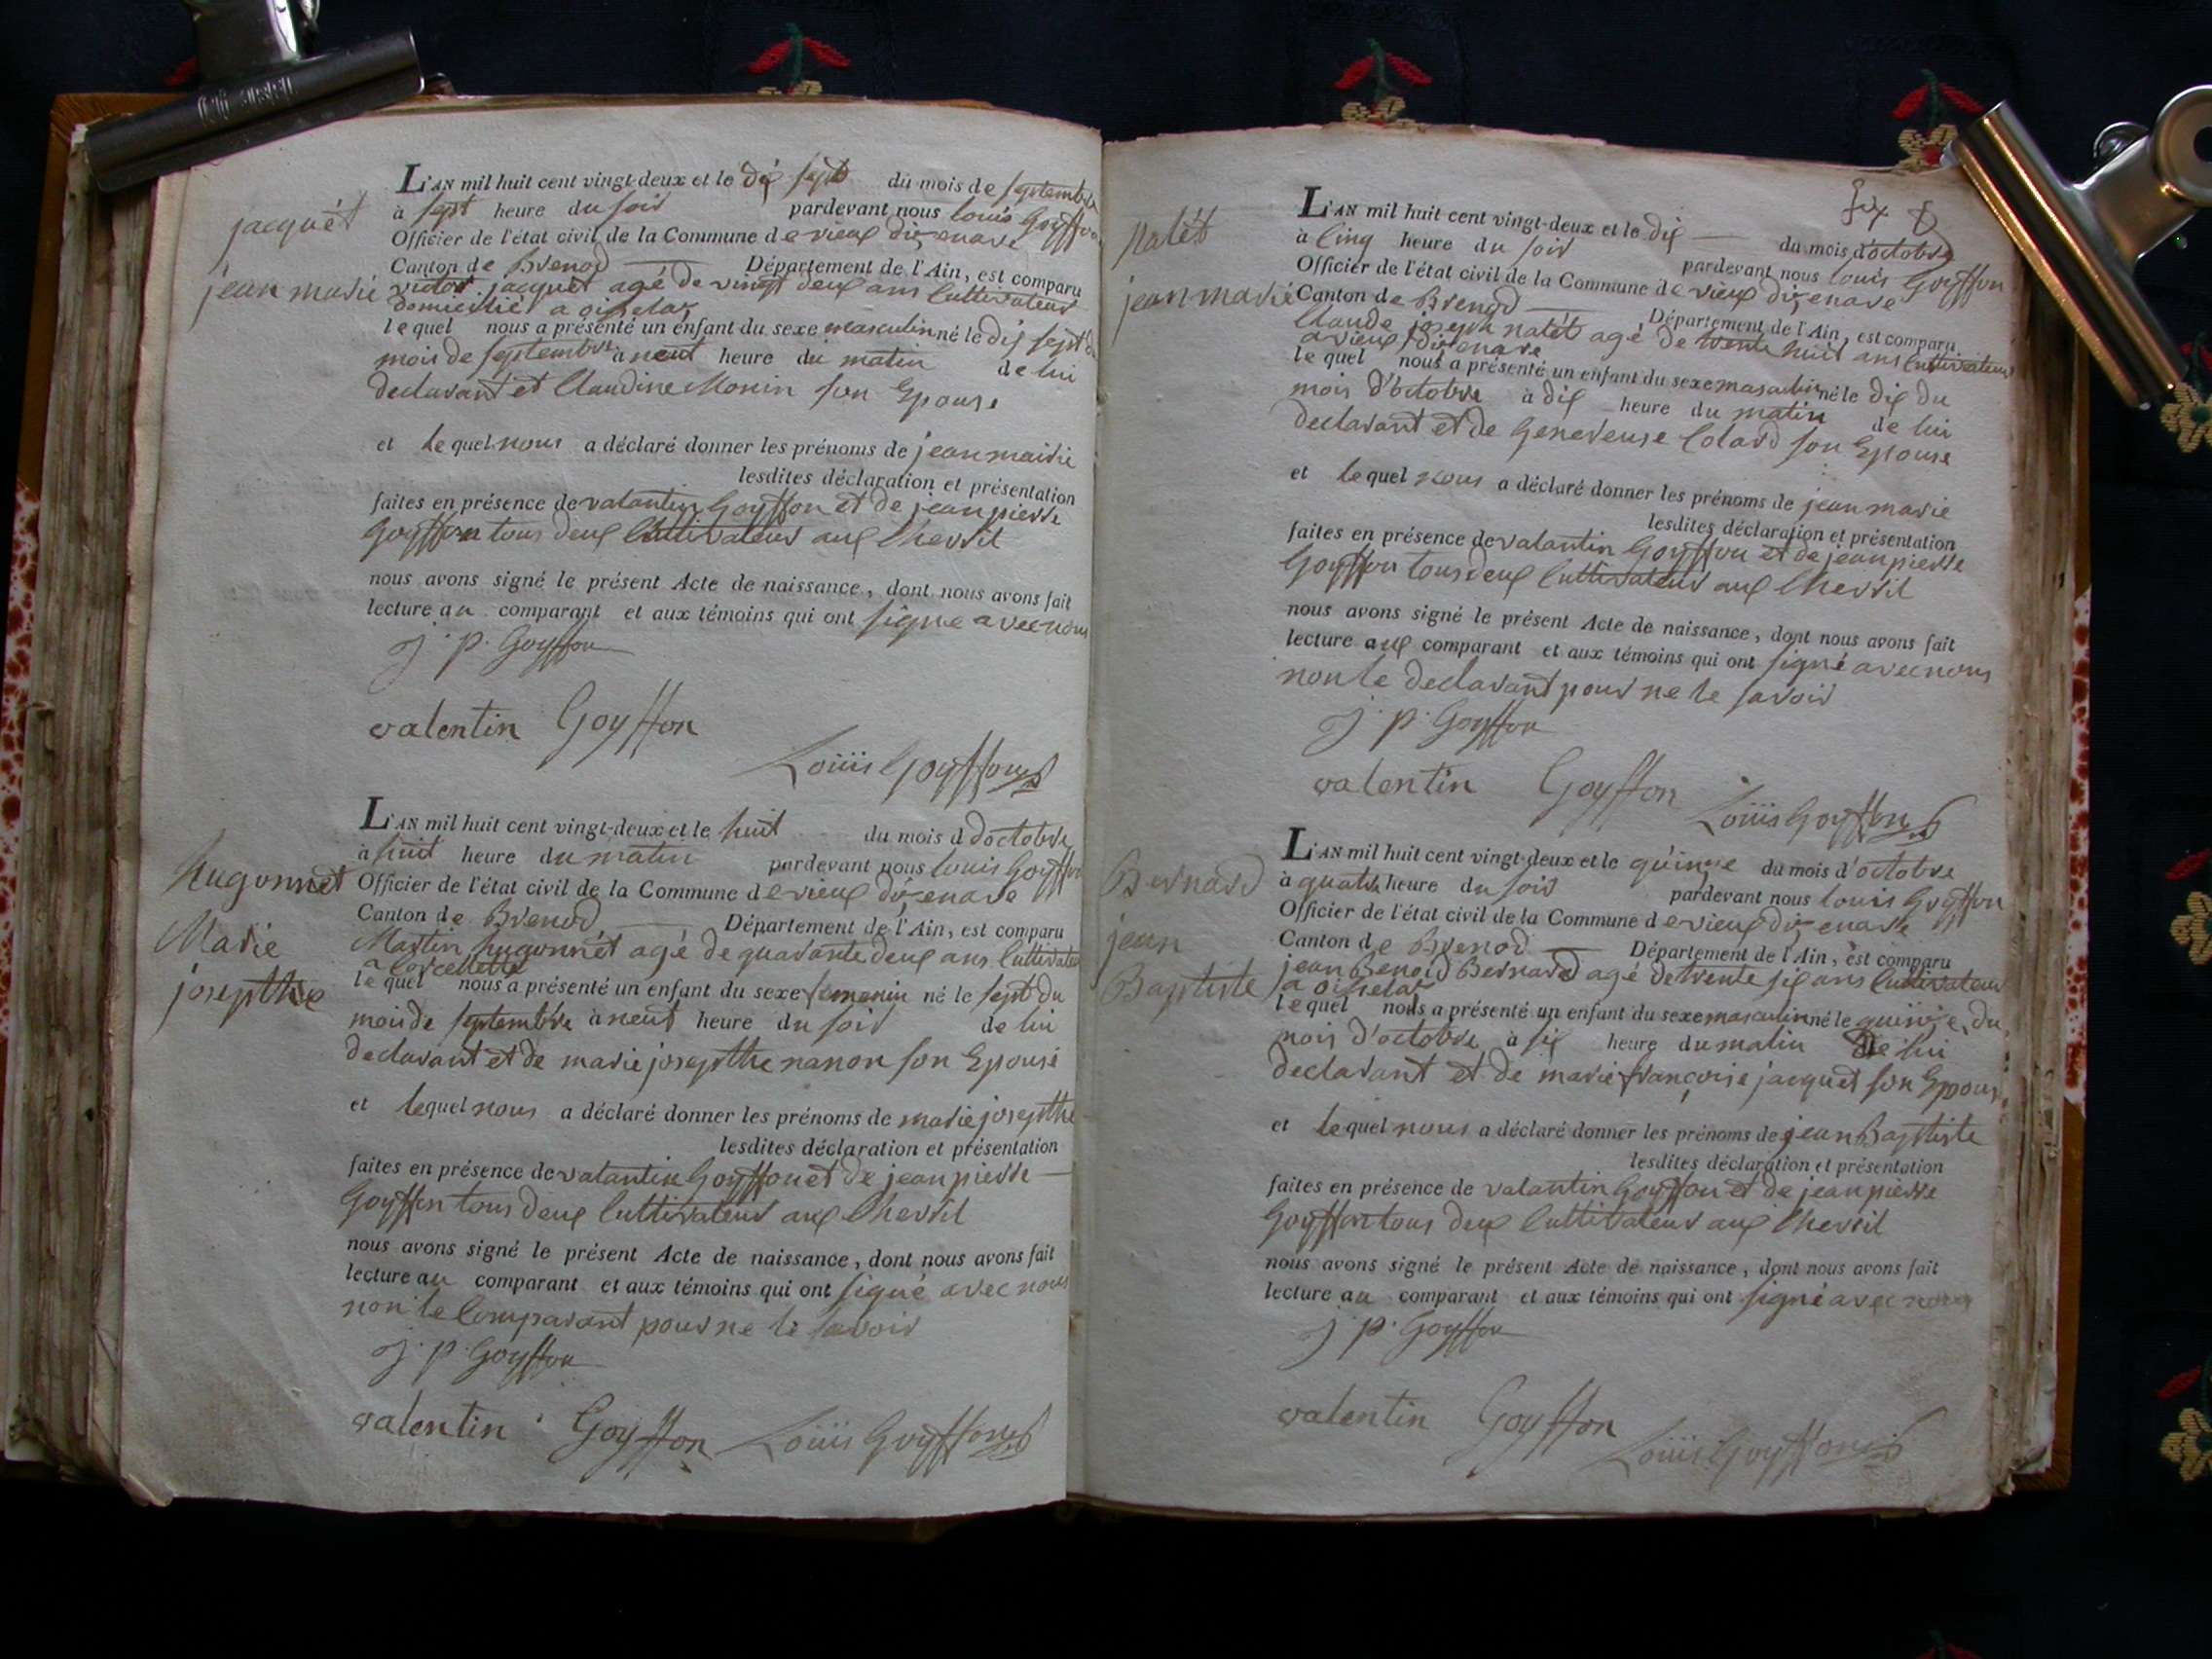 jacquêt
jean marie
L'AN mil huit cent vingt-deux et le dix sept du mois de septembre
à sept heure du soir pardevant nous louis Goyffon
Officier de l'état civil de la Commune de vieux dizenave
Canton de Brenod Département de l'Ain, est comparu
victor jacquet agé de vingt deux ans Cultivateur
domicilié a
lequel nous a présenté un enfant du sexe masculin né le dix sept du
mois de septembre à neut heure du matin de lui
declarant et Claudine Monin son Epouse
et lequel nous a déclaré donner les prénoms de jean mairie
lesdites déclaration et présentation
faites en présence de valantin Goyffon et de jean pierre
Goyffon tous deux Cultivateur aux Cherril
nous avons signé le présent Acte de naissance, dont nous avons fait
lecture au comparant et aux témoins qui ont signe avec nous
J. P. Goyffon
valentin Goyffon
Loüis Goyffon
hugonnet
Marie
josepthe
L'AN mil huit cent vingt-deux et le huit du mois d doctobre
à huit heure du matin pardevant nous louis Goyffon
Officier de l'état civil de la Commune de vieux dizenave
Canton de Brenod Département de l'Ain, est comparu
Martin hugonnét agé de quarante deux ans Cultivateur
a Corcellette
lequel nous a présenté un enfant du sexe femenin né le sept du
mois de septembre à neut heure du soir de lui
declarant et de marie josepthe nanon son Epouse
et lequel nous a déclaré donner les prénoms de marie josepthe
lesdites déclaration et présentation
faites en présence de valantin Goyffon et de jean pierre
Goyffon tous deux Cultivateur aux Cherril
nous avons signé le présent Acte de naissance, dont nous avons fait
lecture au comparant et aux témoins qui ont signé avec nous
non le Comparant pour ne le savoir
J. P. Goyffon
valentin Goyffon Loüis Goyffon
six
Nalét
jean marie
L'AN mil huit cent vingt-deux et le dix du mois d'octobre
à Cinq heure du soir pardevant nous louis Goyffon
Officier de l'état civil de la Commune de vieux dizenave
Canton de Brenod Département de l'Ain, est comparu
Claude joseph nalét agé de trente huit ans Cultivateur
a vieux dizenave
lequel nous a présenté un enfant du sexe masculin né le dix du
mois d'octobre à dix heure du matin de lui
declarant et de Genereuse Colard son Epouse
et lequel nous a déclaré donner les prénoms de jean marie
lesdites déclaration et présentation
faites en présence de valantin Goyffon et de jean pierre
Goyffon tous deux Cultivateur aux Cherril
nous avons signé le présent Acte de naissance, dont nous avons fait
lecture aux comparant et aux témoins qui ont signé avec nous
non le declarant pour ne le savoir
J. P. Goyffon
valentin Goyffon Loüis Goyffon
Bernard
jean
Baptiste
L'AN mil huit cent vingt-deux et le quinze du mois d'octobre
à quatre heure du soir pardevant nous louis Goyffon
Officier de l'état civil de la Commune de vieux dizenave
Canton de Brenod Département de l'Ain, est comparu
jean Benoid Bernard agé de trente six ans Cultivateur
lequel nous a présenté un enfant du sexe masculin né le quinze du
mois d'octobre à six heure du matin De lui
declarant et de marie françoise jacquet son Epouse
et lequel nous a déclaré donner les prénoms de jean Baptiste
lesdites déclaration et présentation
faites en présence de valantin Goyffon et de jean pierre
Goyffon tous deux Cultivateur aux Cherril
nous avons signé le présent Acte de naissance, dont nous avons fait
lecture au comparant et aux témoins qui ont signé avec nous
J. P. Goyffon
valentin Goyffon
Loüis Goyffon